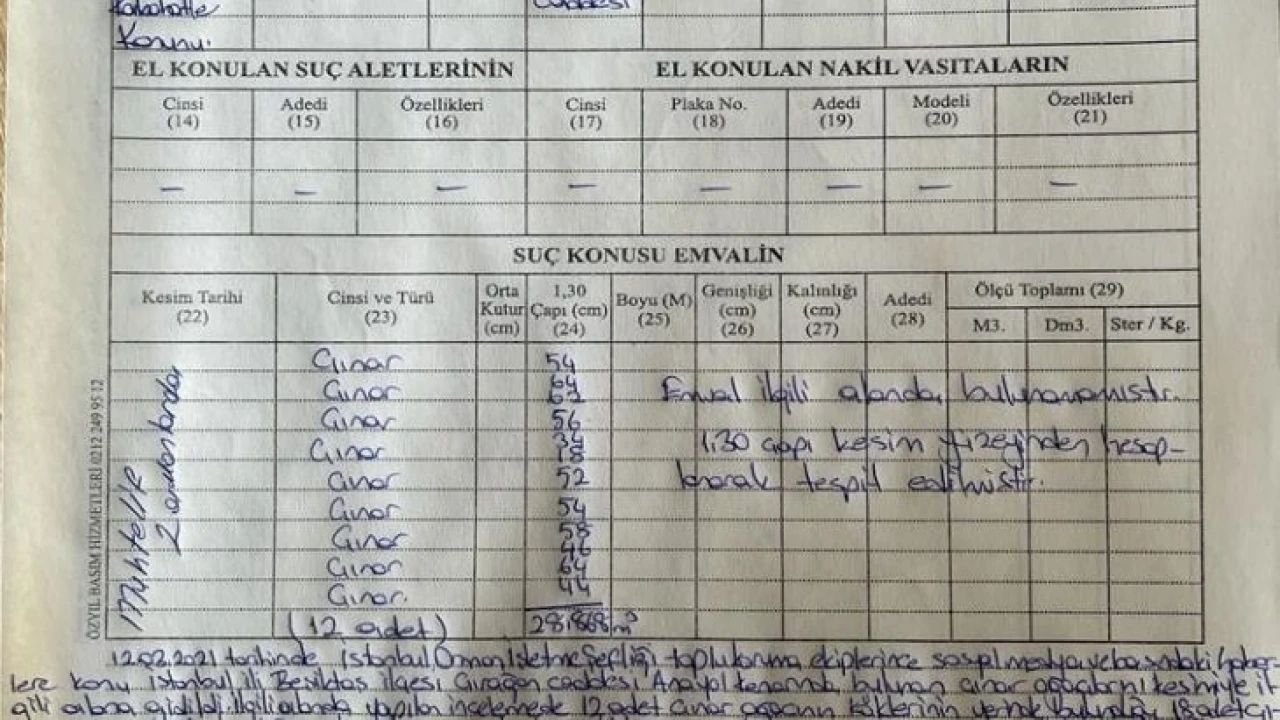 Kabahatle
Caddesi
Konunu.
EL KONULAN SUÇ ALETLERİNİN
EL KONULAN NAKİL VASITALARIN
Cinsi (14)
Adedi (15)
Özellikleri (16)
Cinsi (17)
Plaka No. (18)
Adedi (19)
Modeli (20)
Özellikleri (21)
— — — — — — — —
SUÇ KONUSU EMVALİN
Kesim Tarihi (22)
Cinsi ve Türü (23)
Orta Kutur (cm)
1,30 Çapı (cm) (24)
Boyu (M) (25)
Genişliği (cm) (26)
Kalınlığı (cm) (27)
Adedi (28)
Ölçü Toplamı (29)
M3.
Dm3.
Ster / Kg.
Muhtelif
Zamanlarda
Çınar
Çınar
Çınar
Çınar
Çınar
Çınar
Çınar
Çınar
Çınar.
(12 adet)
54
64
56
34
18
52
54
58
46
64
44
m³
Emval ilgili alanda bulunamamıştır.
1.30 çapı kesim yüzeyinden hesap-
lanarak tespit edilmiştir.
ÖZYIL BASIM HİZMETLERİ 0212 249 95 12
12.02.2021 tarihinde İstanbul Orman İşletme Şefliği toplu koruma ekiplerince sosyal medya ve basındaki haber-
lere konu İstanbul ili Beşiktaş ilçesi Çırağan caddesi Anayol kenarında bulunan çınar ağaçlarını kesimiyle il-
gili alana gidildi. İlgili alanda yapılan incelemede 12 adet çınar ağacının köklerinin yerinde bulunduğu 18 adet